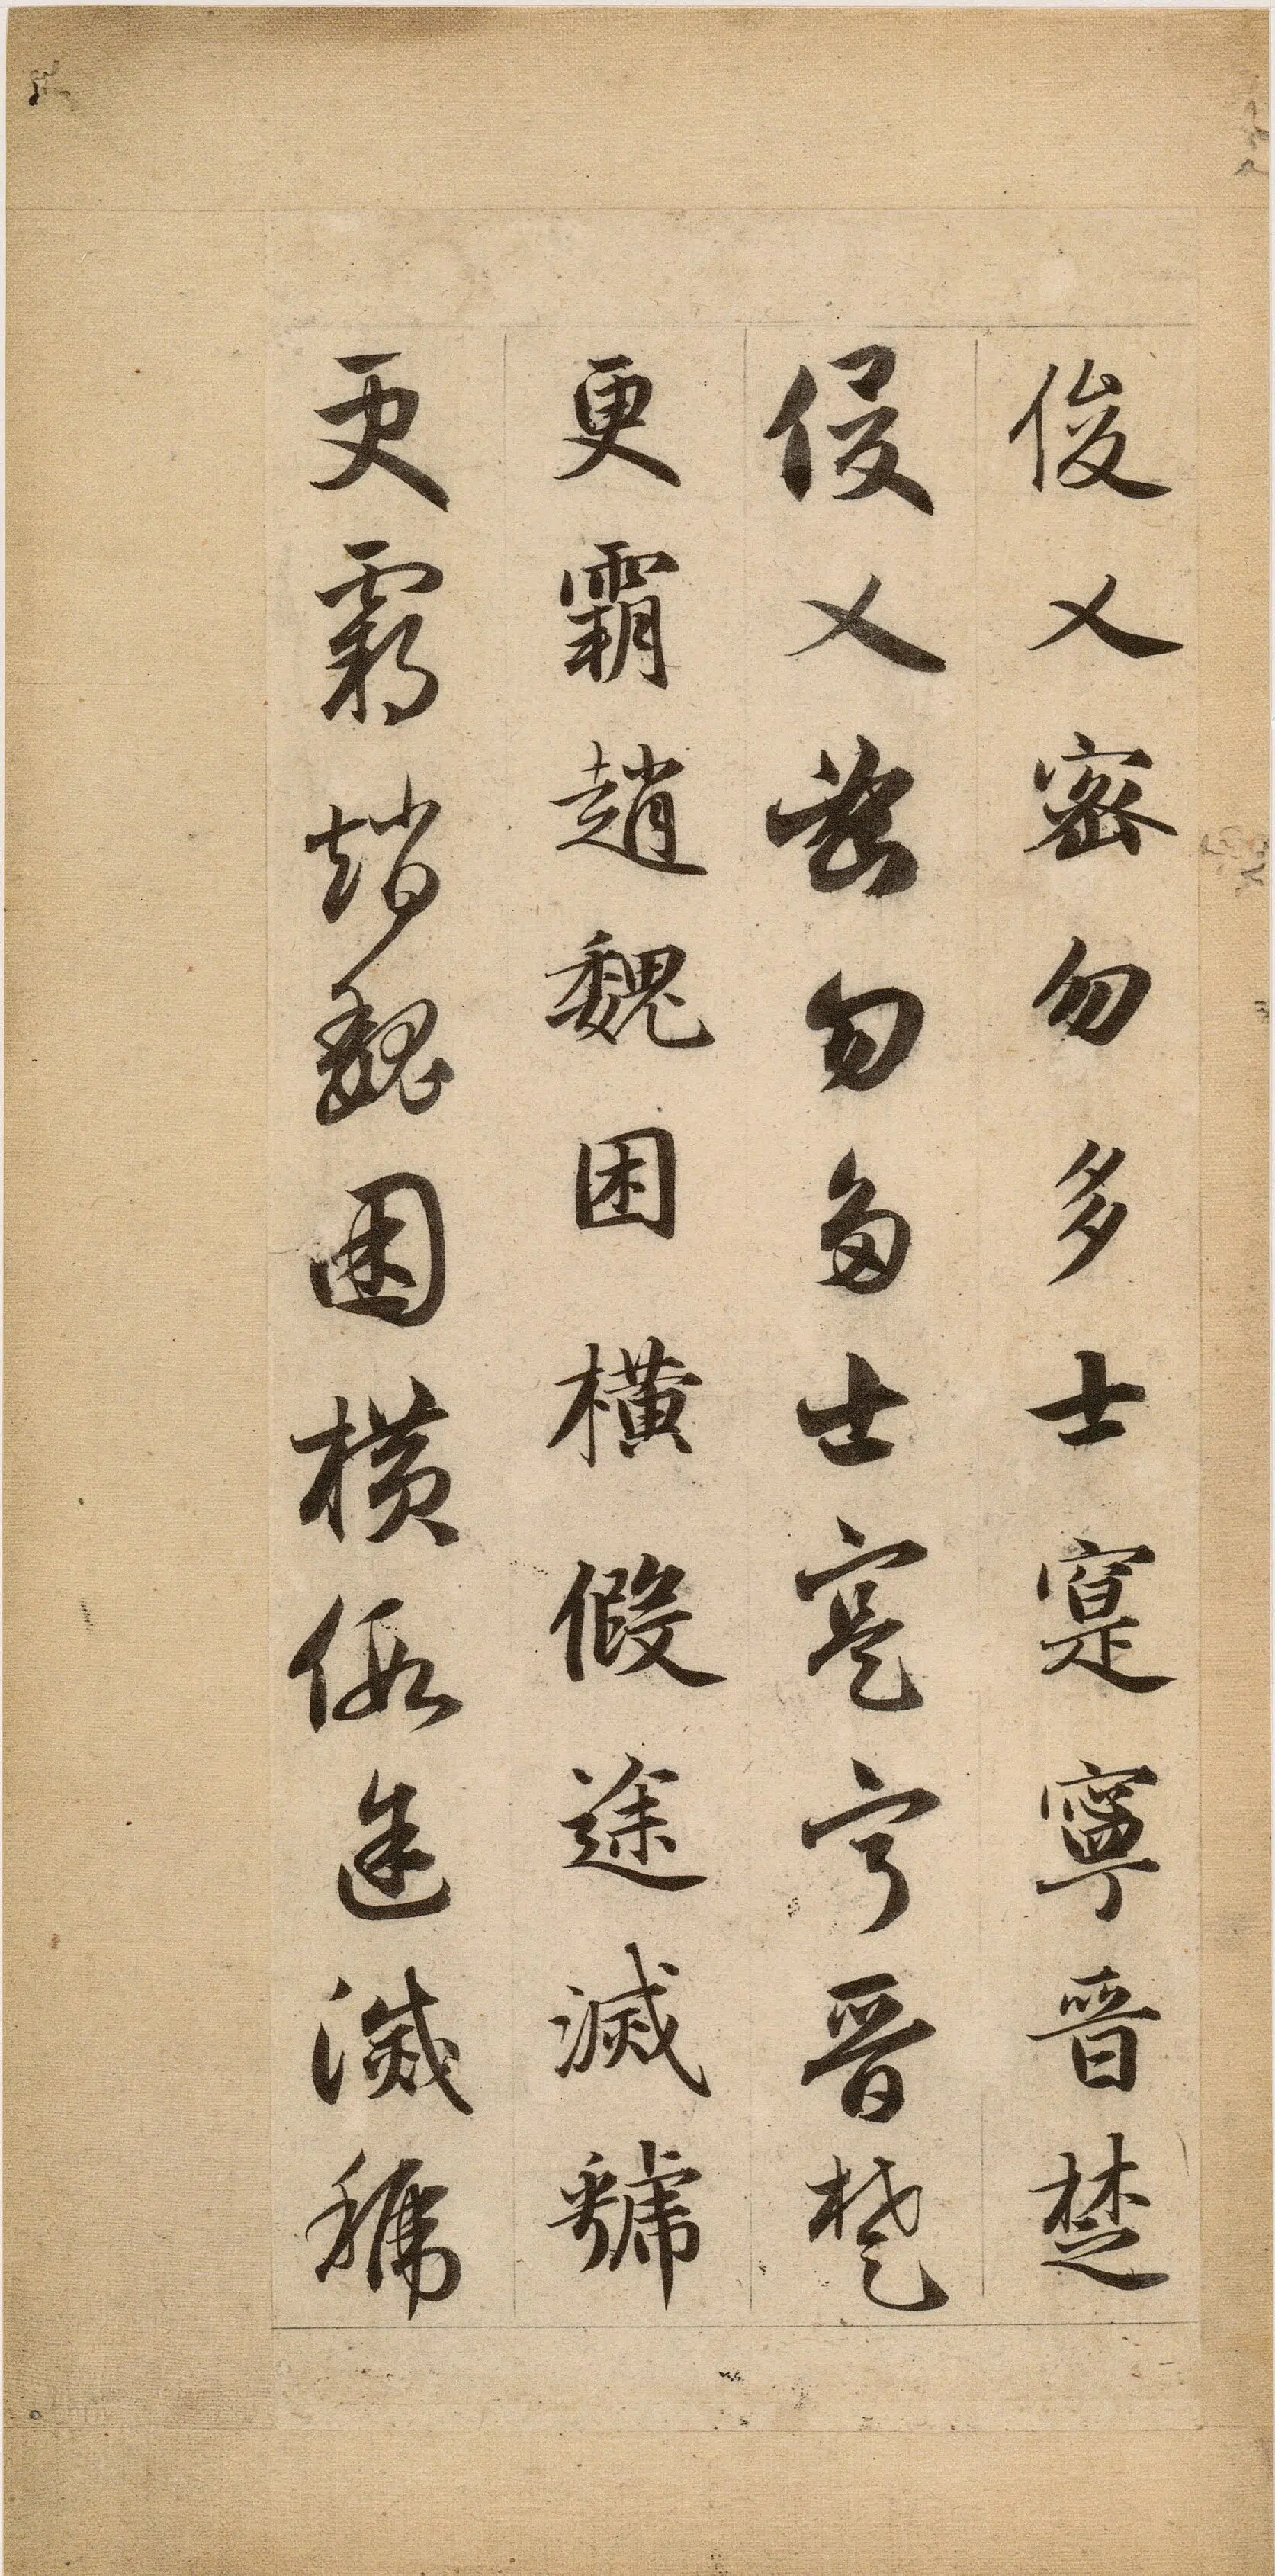 俊乂密勿多士寔寧晉楚
俊乂密勿多士寔寧晉楚
更霸趙魏困橫假途滅虢
更霸趙魏困橫假途滅虢